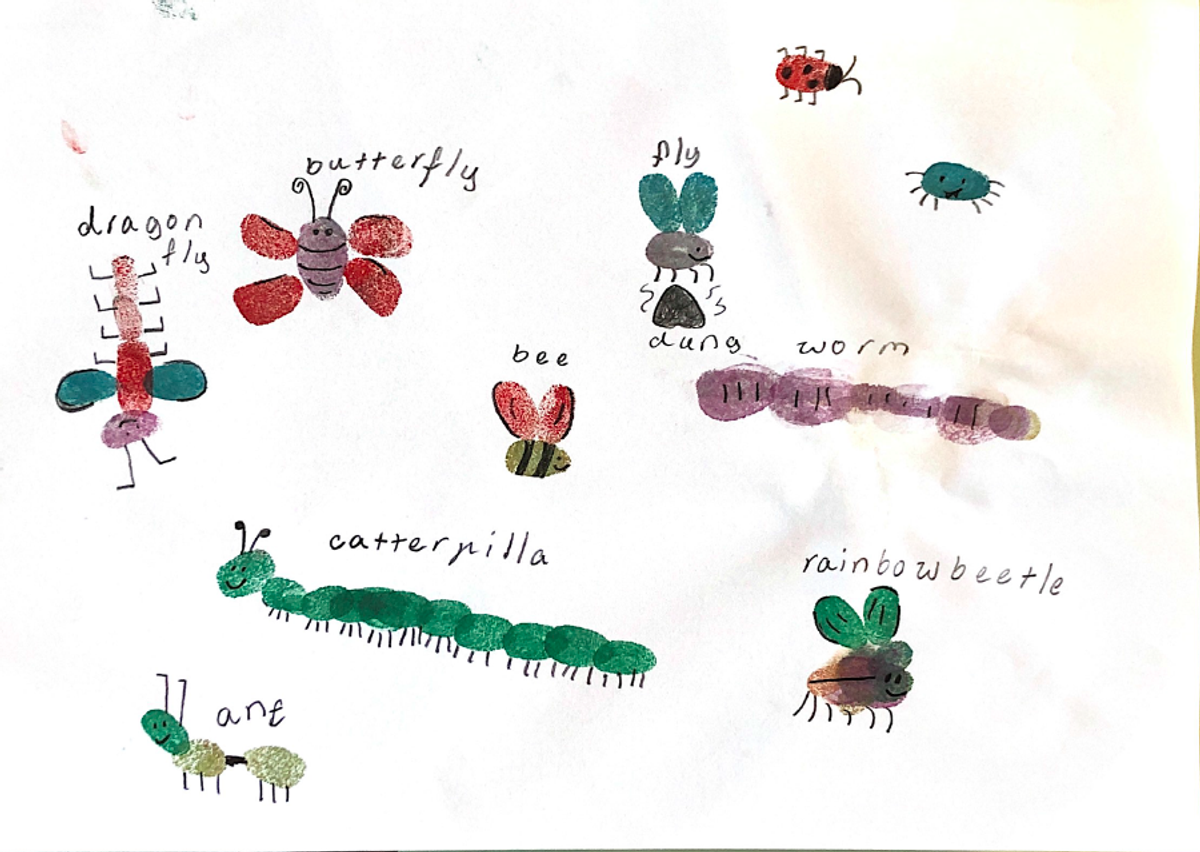 butterfly
fly
dragon
fly
bee
dung
worm
catterpilla
rainbowbeetle
ant